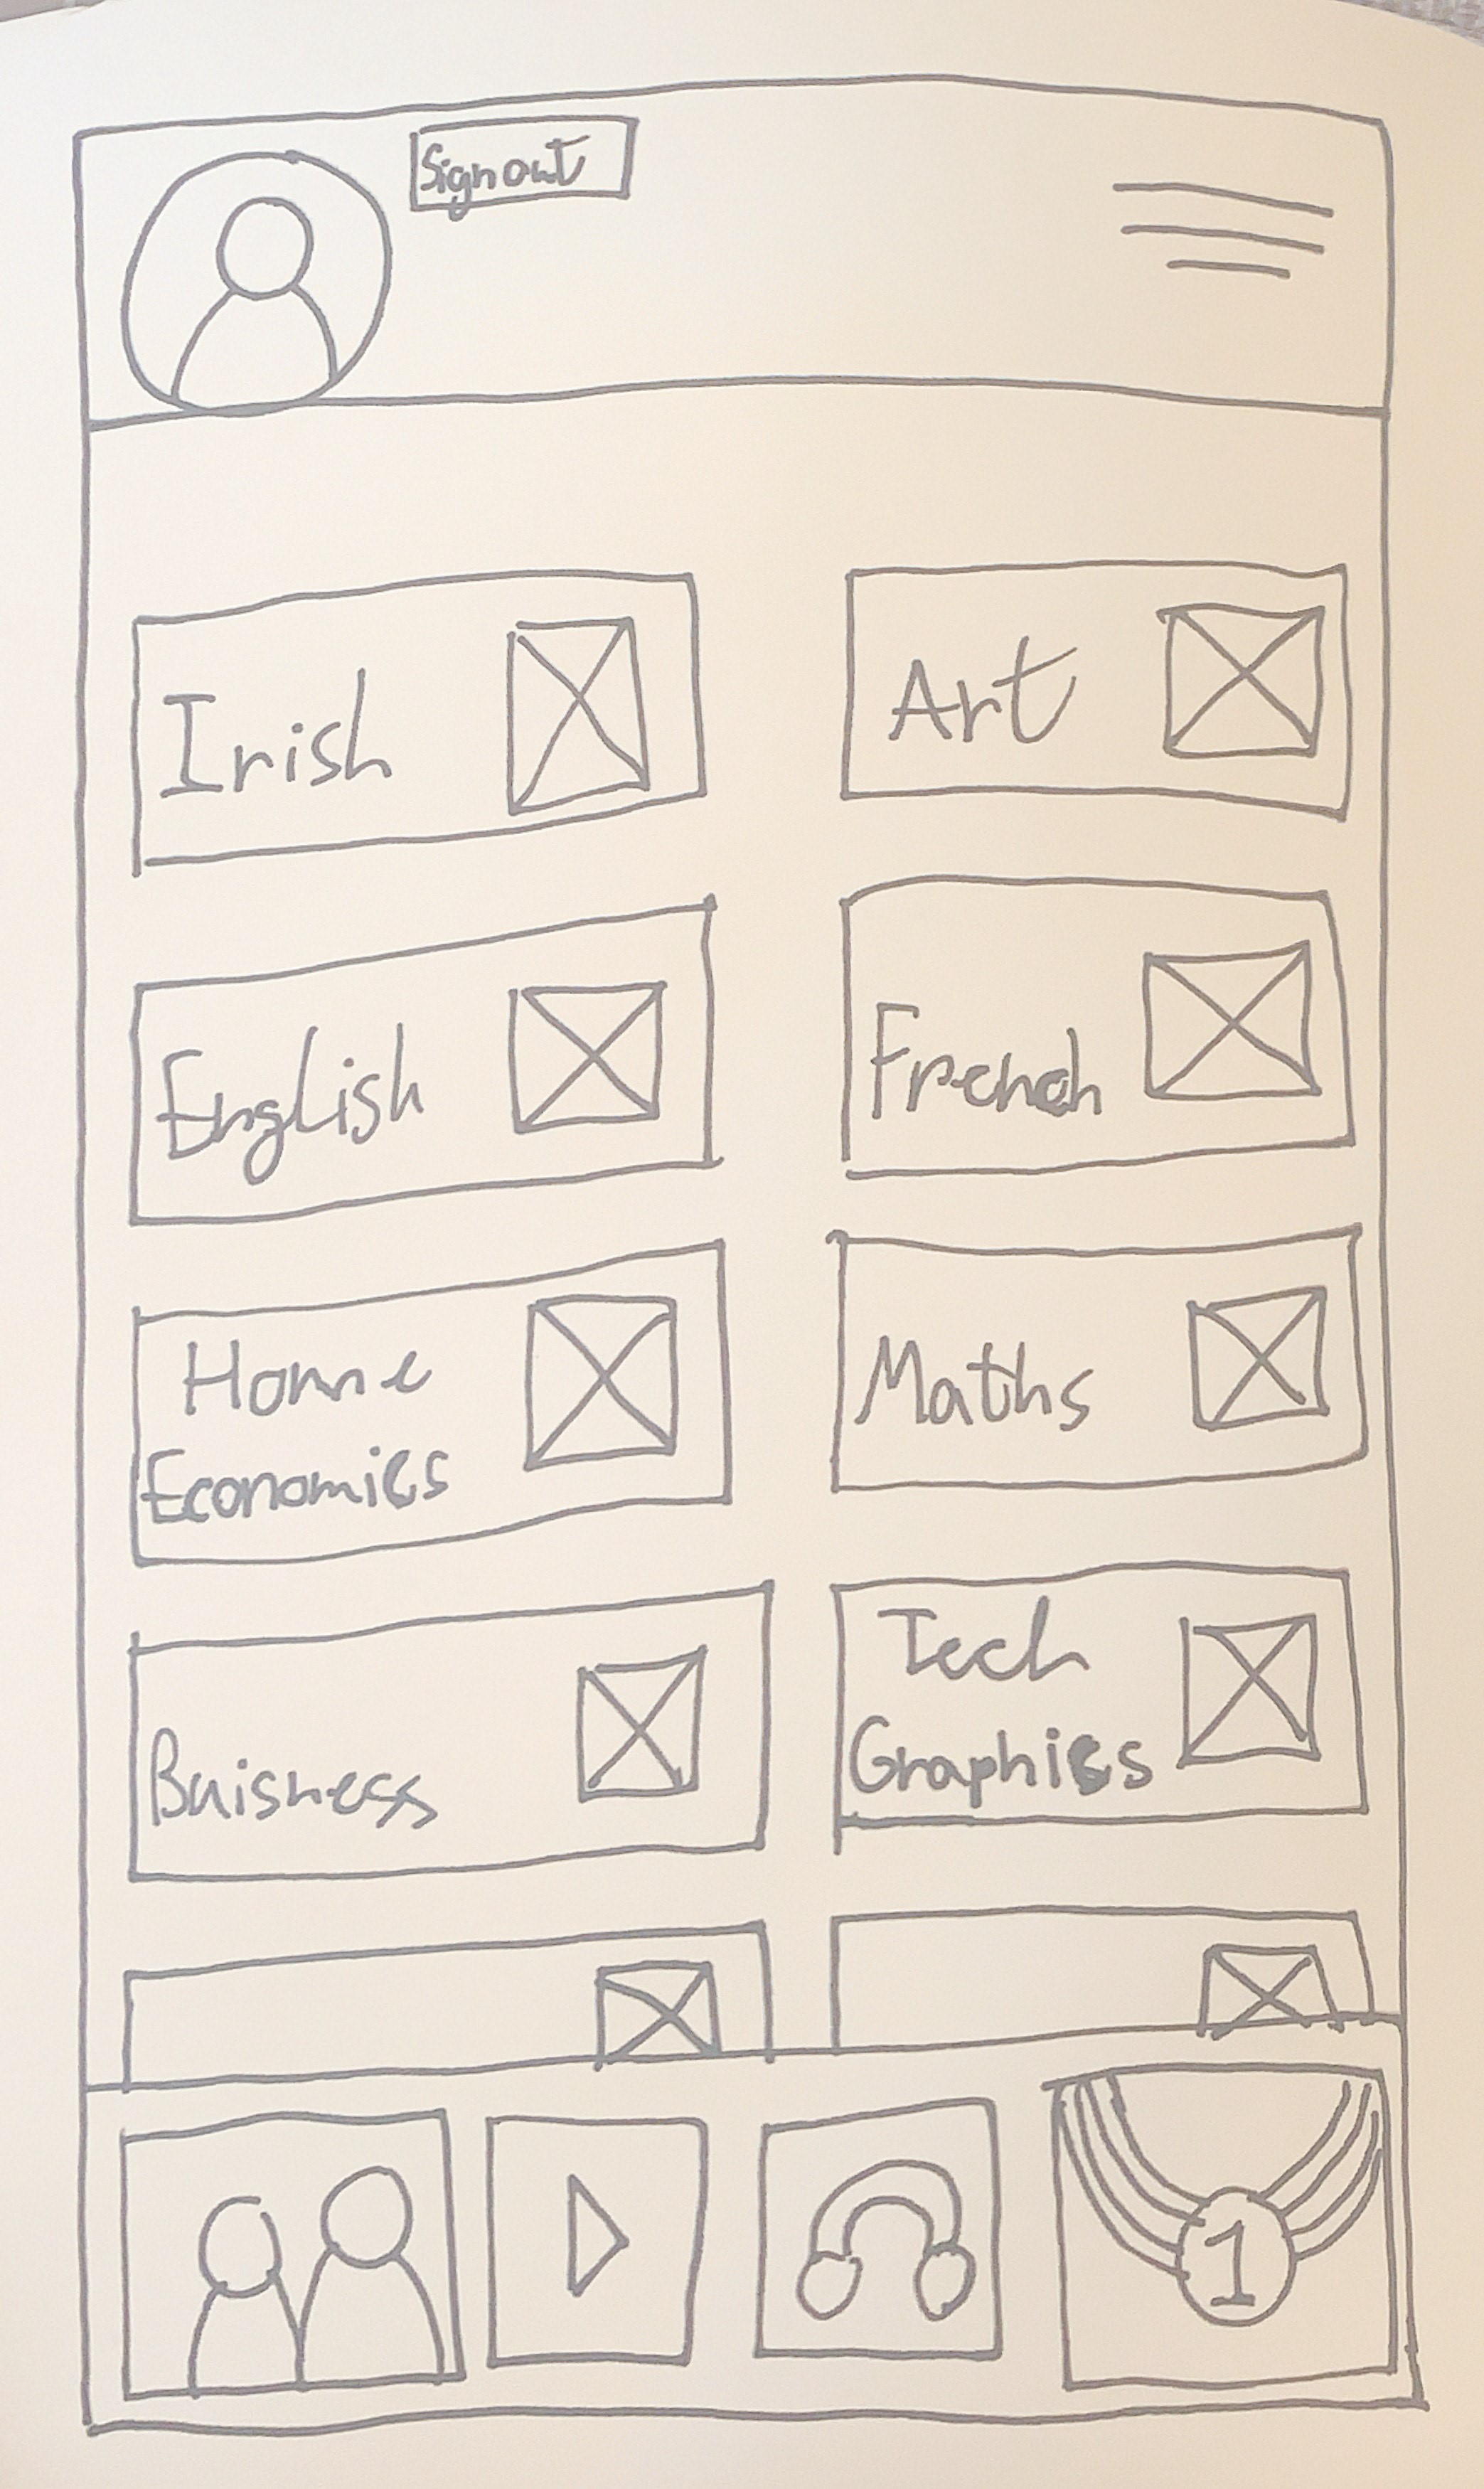 Sign out
Irish
Art
English
French
Home
Economics
Maths
Buisness
Tech
Graphics
1